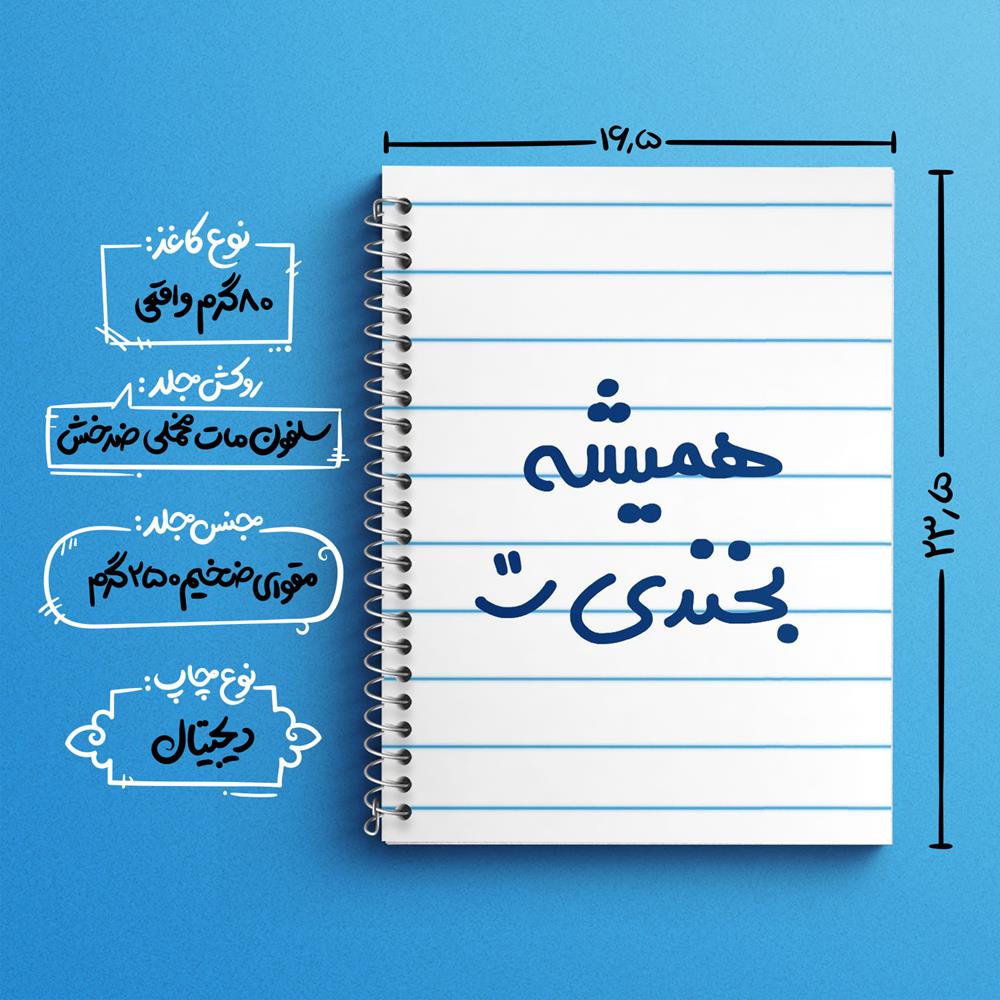 ۱۶٫۵
۲۳٫۵
نوع کاغذ:
۸۰گرم واقعی
روکش جلد:
سلفون مات مخملی ضدخش
جنس جلد:
مقوای ضخیم ۲۵۰گرم
نوع چاپ:
دیجیتال
همیشه
بخندی